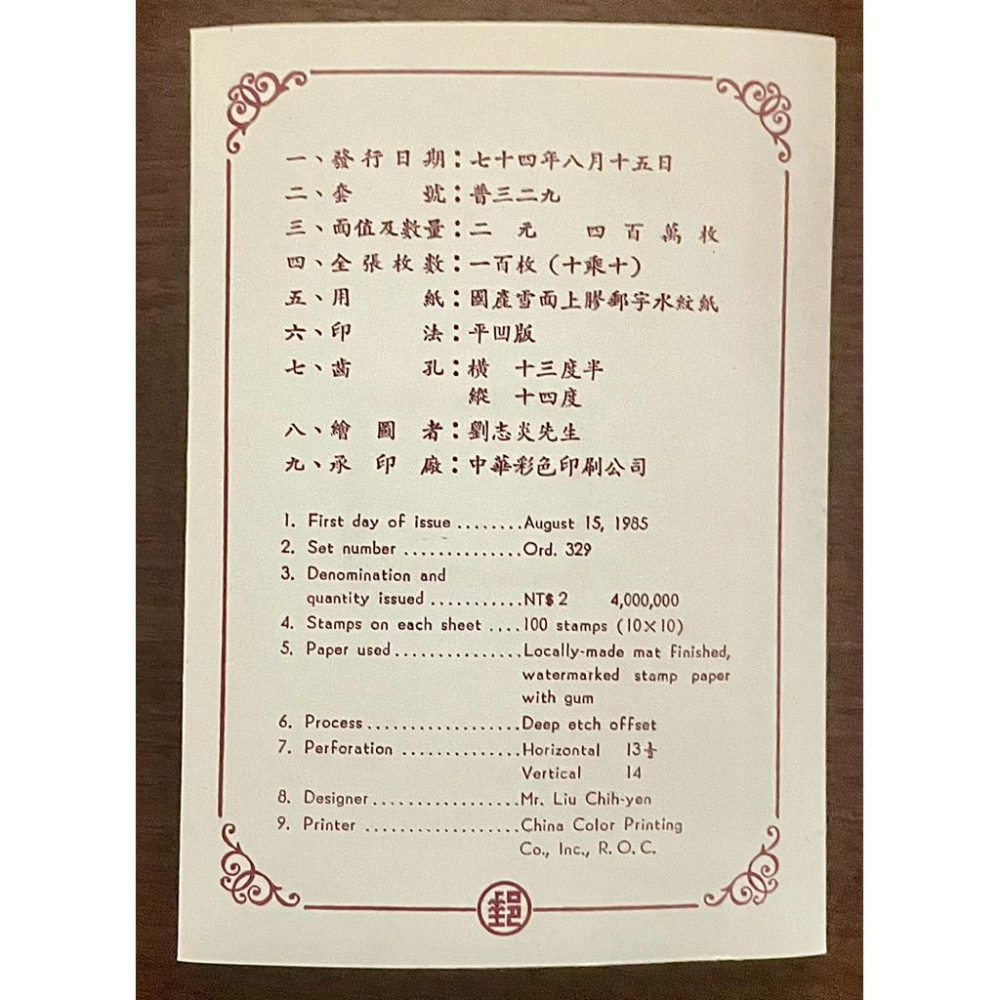 一、發行日期：七十四年八月十五日
二、套號：普三二九
三、面值及數量：二元 四百萬枚
四、全張枚數：一百枚（十乘十）
五、用紙：國產雪面上膠郵字水紋紙
六、印法：平凹版
七、齒孔：橫 十三度半
縱 十四度
八、繪圖者：劉志炎先生
九、承印廠：中華彩色印刷公司
1. First day of issue ........August 15, 1985
2. Set number ..............Ord. 329
3. Denomination and
quantity issued ...........NT$ 2 4,000,000
4. Stamps on each sheet ....100 stamps (10×10)
5. Paper used...............Locally-made mat finished,
watermarked stamp paper
with gum
6. Process..................Deep etch offset
7. Perforation ..............Horizontal 13½
Vertical 14
8. Designer.................Mr. Liu Chih-yen
9. Printer ..................China Color Printing
Co., Inc., R. O. C.
郵